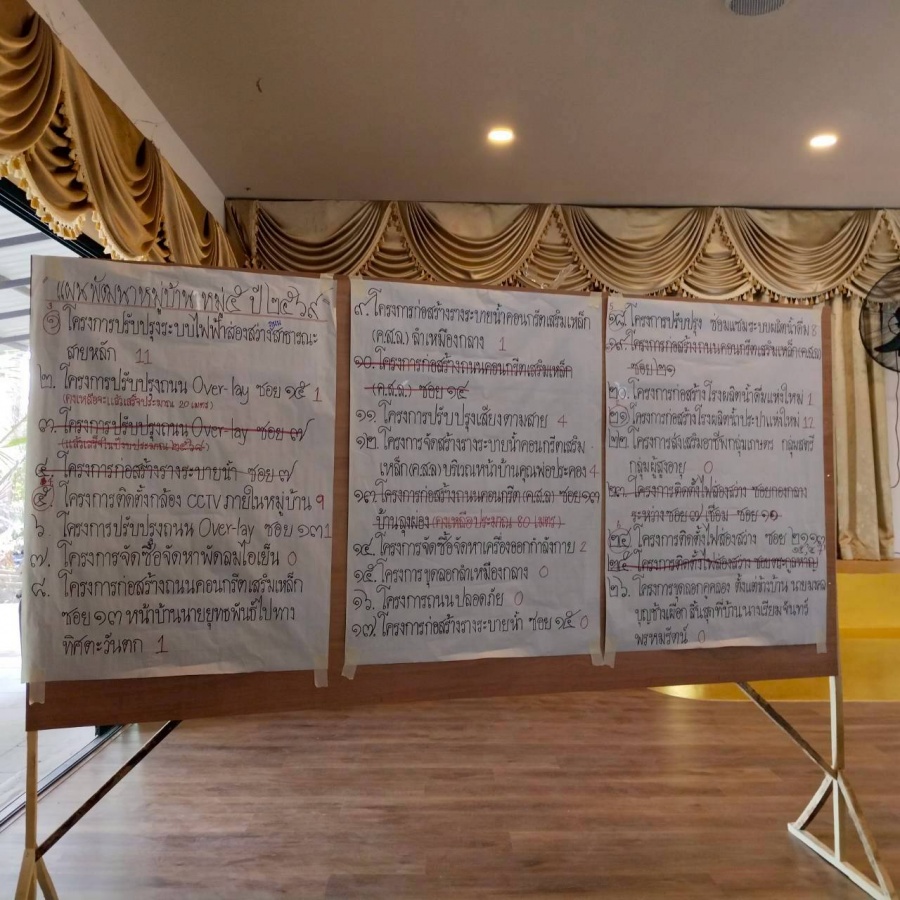 แผนพัฒนาหมู่บ้าน หมู่๕ ปี ๒๕๖๙
๑ โครงการปรับปรุงระบบไฟฟ้าส่องสว่างสาธารณะ
สายหลัก 11
๒. โครงการปรับปรุงถนน Over-lay ซอย ๑๕ 1
(คงเหลือจะแล้วเสร็จประมาณ 20 เมตร)
๓. โครงการปรับปรุงถนน Over-lay ซอย ๗
(แล้วเสร็จในปีงบประมาณ ๒๕๖๘)
๔. โครงการก่อสร้างรางระบายน้ำ ซอย ๗
๕ โครงการติดตั้งกล้อง CCTV ภายในหมู่บ้าน 9
๖ โครงการปรับปรุงถนน Over-lay ซอย ๑๓ 1
๗. โครงการจัดซื้อจัดหาพัดลมไอเย็น 0
๘. โครงการก่อสร้างถนนคอนกรีตเสริมเหล็ก
ซอย ๑๓ หน้าบ้านนายยุทธพันธ์ไปทาง
ทิศตะวันตก 1
๙. โครงการก่อสร้างรางระบายน้ำคอนกรีตเสริมเหล็ก
(ค.ส.ล.) ลำเหมืองกลาง 1
๑๐. โครงการก่อสร้างถนนคอนกรีตเสริมเหล็ก
(ค.ส.ล.) ซอย ๑๔
๑๑ โครงการปรับปรุงเสียงตามสาย 4
๑๒. โครงการจัดสร้างรางระบายน้ำคอนกรีตเสริม
เหล็ก(ค.ส.ล) บริเวณหน้าบ้านคุณพ่อประคอง 4
๑๓. โครงการก่อสร้างถนนคอนกรีต (ค.ส.ล) ซอย ๑๓
บ้านลุงผ่อง (คงเหลือประมาณ 80 เมตร)
๑๔. โครงการจัดซื้อจัดหาเครื่องออกกำลังกาย 2
๑๕. โครงการขุดลอกลำเหมืองกลาง 0
๑๖. โครงการถนนปลอดภัย 0
๑๗. โครงการก่อสร้างรางระบายน้ำ ซอย ๑๕ 0
๑๘. โครงการปรับปรุง ซ่อมแซมระบบผลิตน้ำดื่ม 8
๑๙. โครงการก่อสร้างถนนคอนกรีตเสริมเหล็ก(ค.ส.ล)
ซอย ๒๑
๒๐. โครงการก่อสร้างโรงผลิตน้ำดื่มแห่งใหม่ 1
๒๑ โครงการก่อสร้างโรงผลิตน้ำประปาแห่งใหม่ 12
๒๒ โครงการส่งเสริมอาชีพกลุ่มเกษตร กลุ่มสตรี
กลุ่มผู้สูงอายุ 0
๒๓. โครงการติดตั้งไฟส่องสว่าง ซอยกองกลาง
ระหว่าง ซอย ๗ เชื่อม ซอย ๑๑
๒๔ โครงการติดตั้งไฟส่องสว่าง ซอย
๒๕ โครงการติดตั้งไฟส่องสว่าง
๒๖. โครงการขุดลอกคูคลอง ตั้งแต่ข้างบ้าน นายมงคล
บุญช้างเผือก สิ้นสุดที่บ้าน นางเรียมจันทร์
พรหมรัตน์ 0